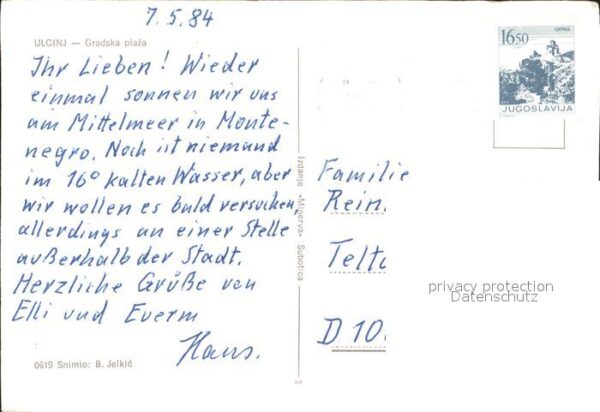 7.5.84
ULCINJ — Gradska plaža
Ihr Lieben! Wieder
einmal sonnen wir uns
am Mittelmeer in Monte-
negro. Noch ist niemand
im 16° kalten Wasser, aber
wir wollen es bald versuchen,
allerdings an einer Stelle
außerhalb der Stadt.
Herzliche Grüße von
Elli und Euerm
Hans.
0619 Snimio: B. Jelkić
Izdanje »Minerva« Subotica
1650
JUGOSLAVIJA
Familie
Rein
Telto
D 10
privacy protection
Datenschutz